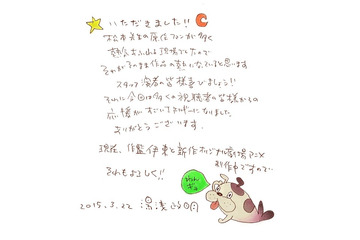 いただきました!!
松本先生の原作ファンが多く
熱気あふれる現場でしたので
それがそのまま作品の熱になっていると思います
スタッフ、演者の皆様喜びましょう!!
それに今回は多くの視聴者の皆様からの
応援がすごいエネルギーになりました。
ありがとうございます。
現在、作監伊東と新作オリジナル劇場アニメ
制作中ですので…
それもよろしく!!
2015.3.22 湯浅政明